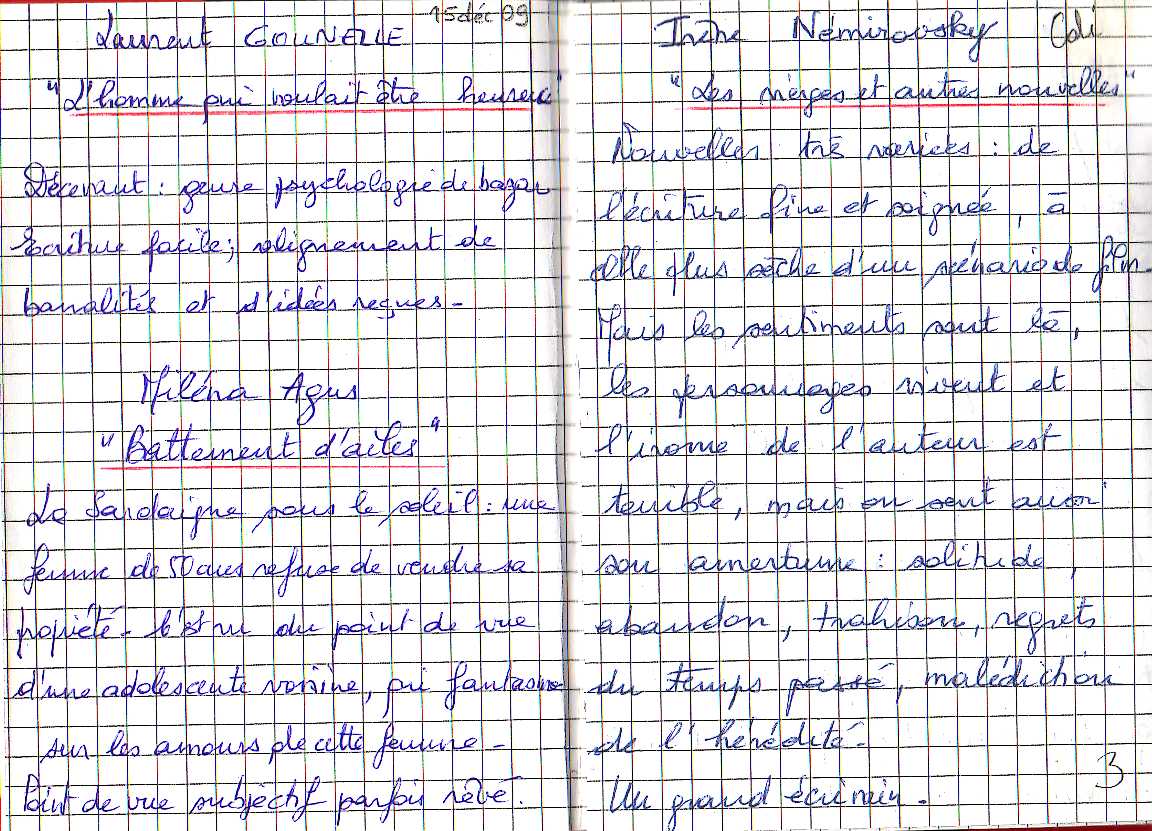 15 déc 09
Laurent GOUNELLE
"L'homme qui voulait être heureux"
Décevant : genre psychologie de bazar
Ecriture facile ; alignement de
banalités et d'idées reçues -
Miléna Agus
"Battement d'ailes"
La Sardaigne sous le soleil : une
femme de 50 ans refuse de vendre sa
propriété - C'est vu du point de vue
d'une adolescente voisine, qui fantasme
sur les amours de cette femme -
Point de vue subjectif parfois rêvé.
Irène Némirovsky
"Les vierges et autres nouvelles"
Nouvelles très variées : de
l'écriture fine et soignée, à
celle plus sèche d'un scénario de film.
Mais les sentiments sont là,
les personnages vivent et
l'ironie de l'auteur est
terrible, mais on sent aussi
son amertume : solitude,
abandon, trahison, regrets
du temps passé, malédiction
de l'hérédité -
Un grand écrivain.
3